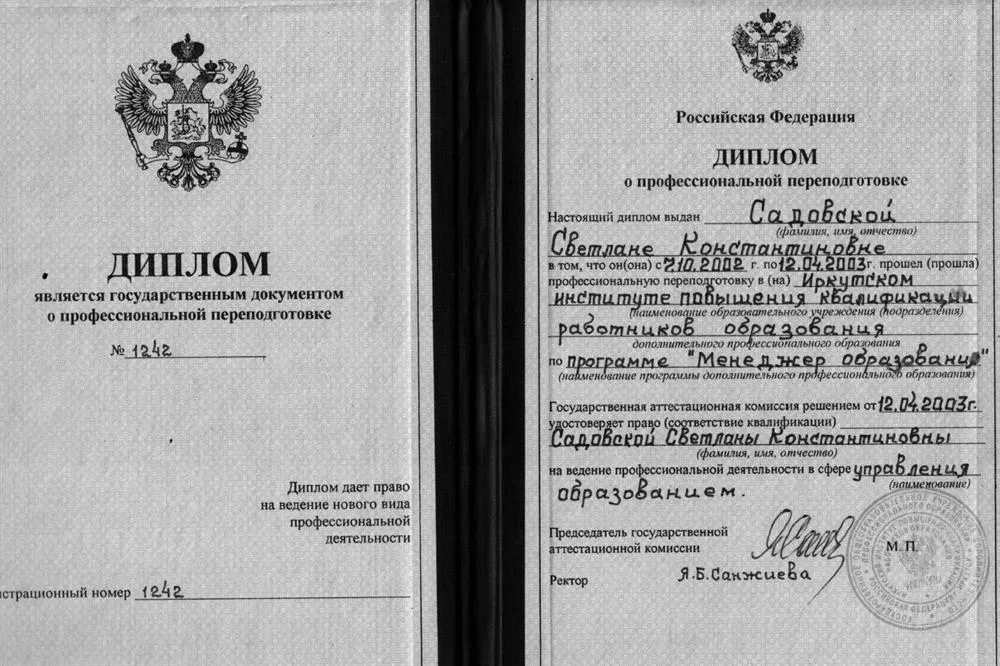 ДИПЛОМ
является государственным документом
о профессиональной переподготовке
№ 1242
Диплом дает право
на ведение нового вида
профессиональной
деятельности
страционный номер 1242
Российская Федерация
ДИПЛОМ
о профессиональной переподготовке
Настоящий диплом выдан Садовской
(фамилия, имя, отчество)
Светлане Константиновне
в том, что он(она) с 7.10.2002 г. по 12.04.2003 г. прошел (прошла)
профессиональную переподготовку в (на) Иркутском
институте повышения квалификации
(наименование образовательного учреждения (подразделения)
работников образования
дополнительного профессионального образования
по программе "Менеджер образования"
(наименование программы дополнительного профессионального образования)
Государственная аттестационная комиссия решением от 12.04.2003г.
удостоверяет право (соответствие квалификации)
Садовской Светланы Константиновны
(фамилия, имя, отчество)
на ведение профессиональной деятельности в сфере управления
(наименование)
образованием.
Председатель государственной
аттестационной комиссии
М. П.
Ректор Я.Б.Санжиева